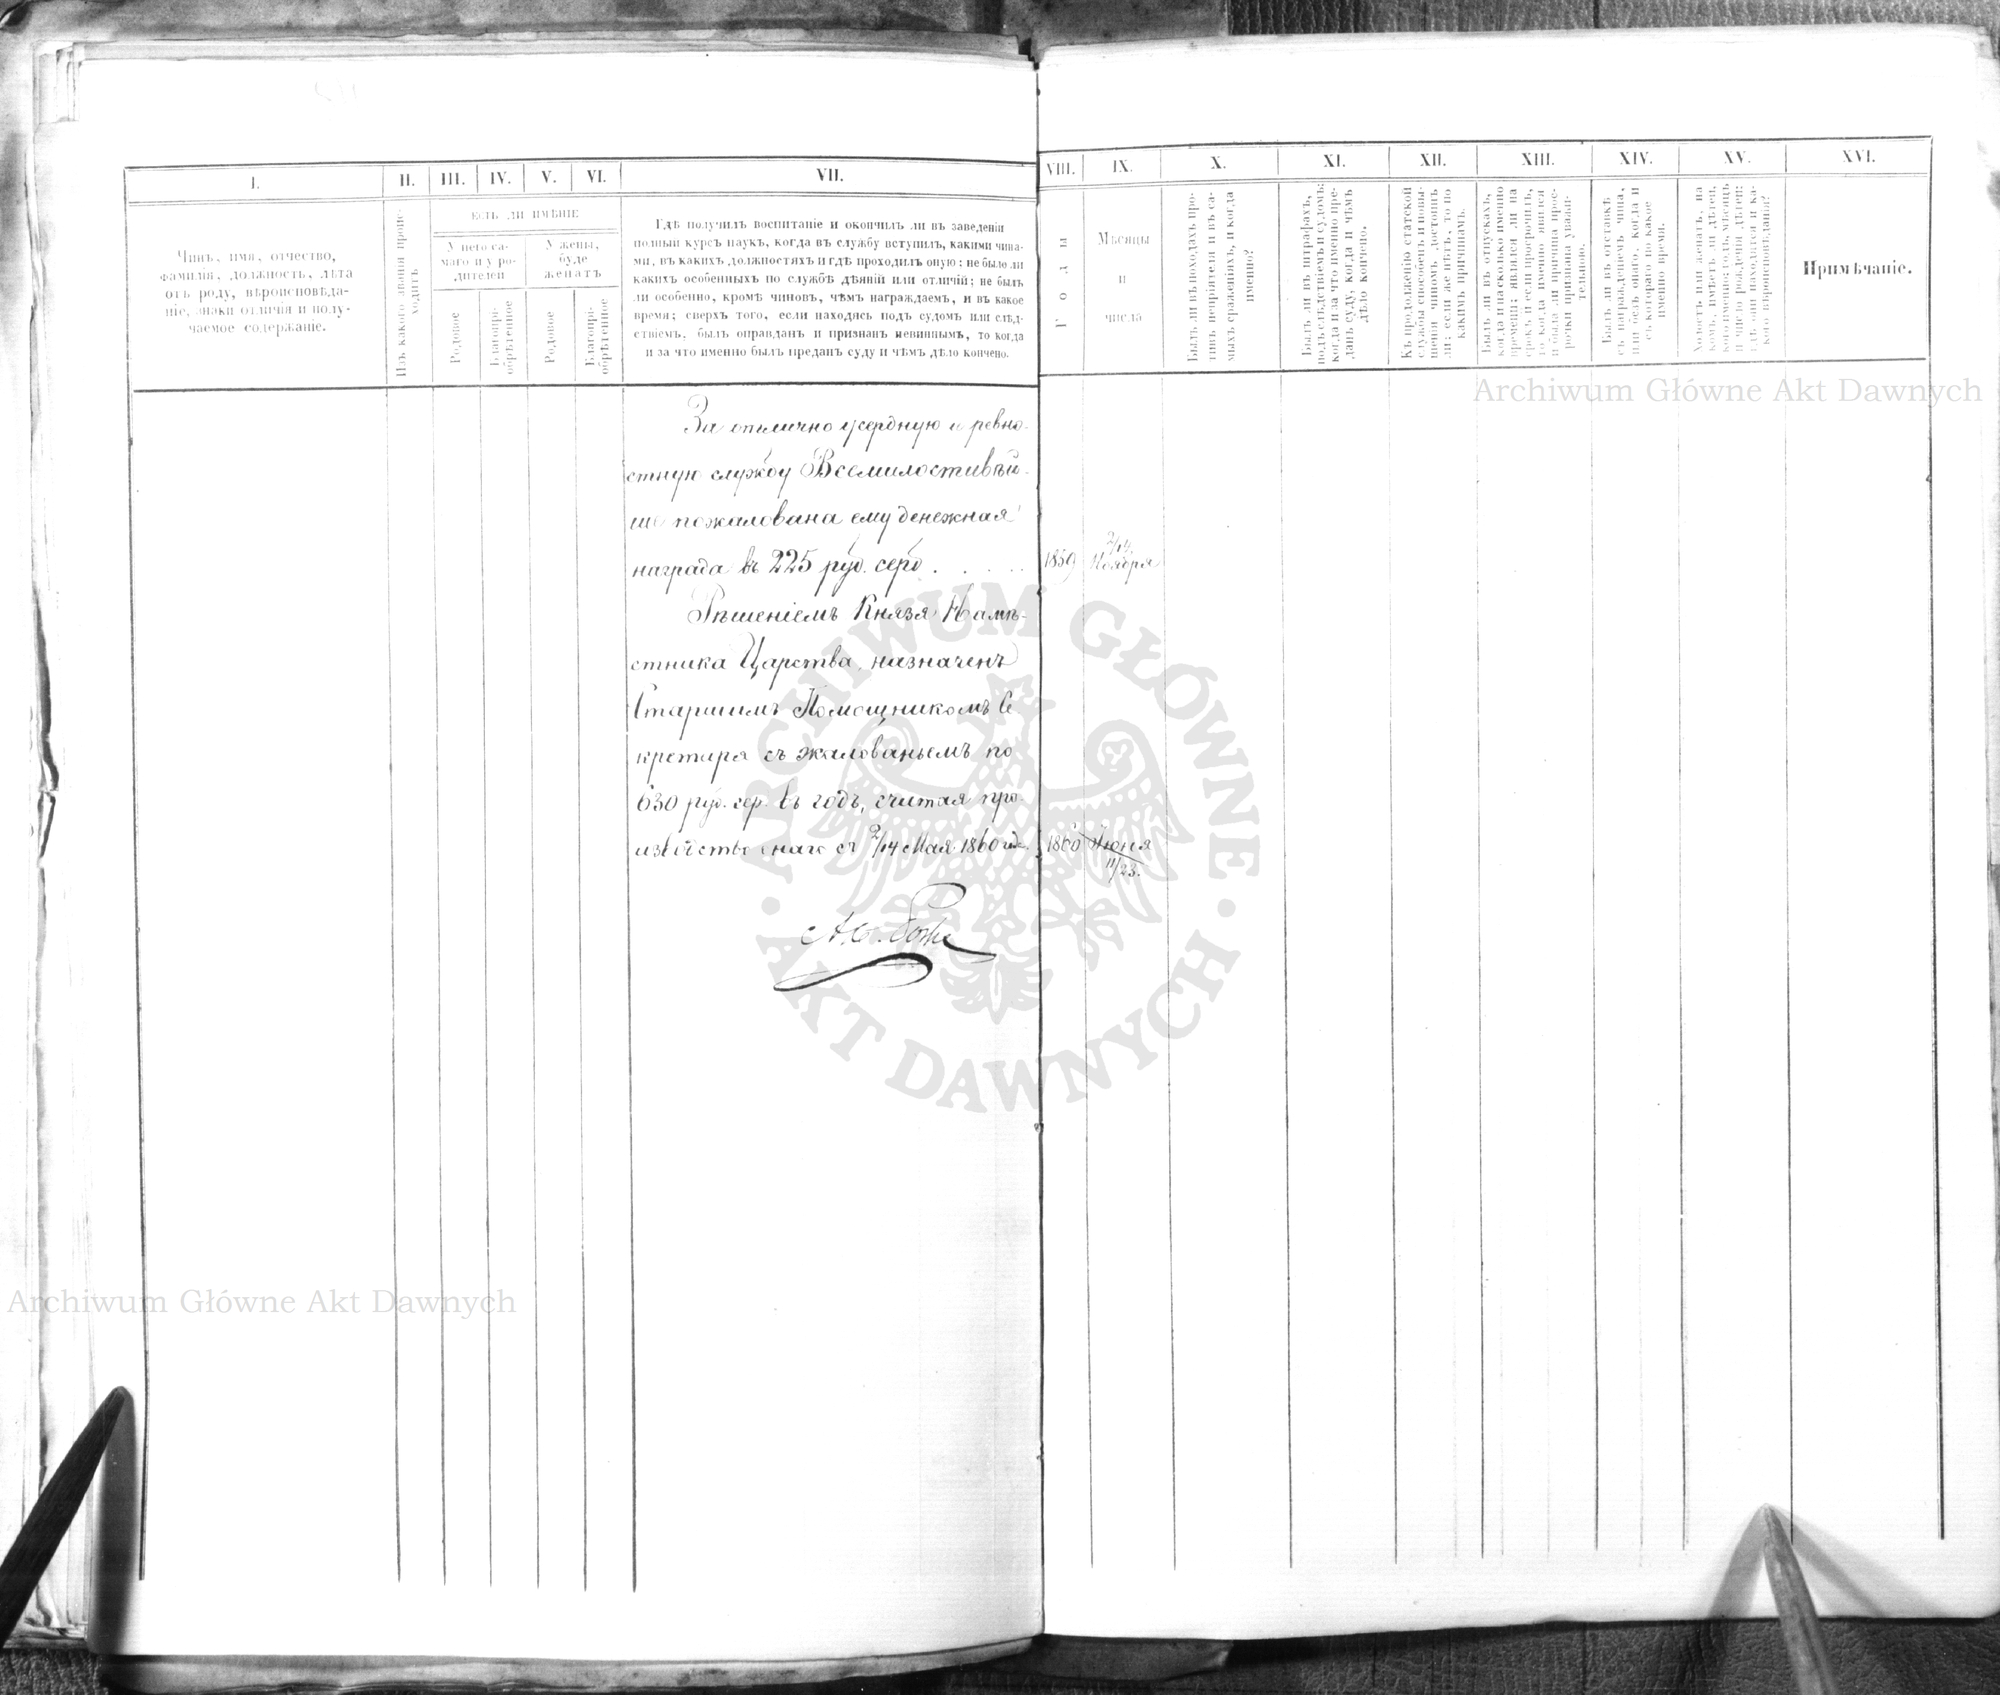 I.
II.
III.
IV.
V.
VI.
VII.
Чинъ, имя, отчество,
фамилія, должность, лѣта
отъ роду, вѣроисповѣда-
ніе, знаки отличія и полу-
чаемое содержаніе.
Изъ какого званія проис-
ходитъ
ЕСТЬ ЛИ ИМѢНІЕ
У него са-
маго и у ро-
дителей
У жены,
буде
женатъ
Родовое
Благопрі-
обрѣтенное
Родовое
Благопрі-
обрѣтенное
Гдѣ получилъ воспитаніе и окончилъ ли въ заведеніи
полный курсъ наукъ, когда въ службу вступилъ, какими чина-
ми, въ какихъ должностяхъ и гдѣ проходилъ оную; не было ли
какихъ особенныхъ по службѣ дѣяній или отличій; не былъ
ли особенно, кромѣ чиновъ, чѣмъ награждаемъ, и въ какое
время; сверхъ того, если находясь подъ судомъ или слѣд-
ствіемъ, былъ оправданъ и признанъ невиннымъ, то когда
и за что именно былъ преданъ суду и чѣмъ дѣло кончено.
За отлично усердную и ревно-
стную службу Всемилостивѣй-
ше пожалована ему денежная
награда въ 225 руб. сереб.
Рѣшеніемъ Князя Намѣ-
стника Царства, назначенъ
Старшимъ Помощникомъ Се
кретаря съ жалованьемъ по
630 руб. сер. въ годъ, считая про-
изводство онаго съ 2/14 Мая 1860 года.
VIII.
IX.
X.
XI.
XII.
XIII.
XIV.
XV.
XVI.
Годы
Мѣсяцы
и
числа
Былъ ли въ походахъ про-
тивъ непріятеля и въ са-
мыхъ сраженіяхъ, и когда
именно?
Былъ ли въ штрафахъ,
подъ слѣдствіемъ и судомъ;
когда и за что именно пре-
данъ суду, когда и чѣмъ
дѣло кончено.
Къ продолженію статской
службы способенъ и повы-
шенія чиномъ достоинъ
ли; если же нѣтъ, то по
какимъ причинамъ.
Былъ ли въ отпускахъ,
когда и насколько именно
времени; являлся ли на
срокъ и если просрочилъ,
то когда именно явился
и была ли причина прос-
рочки признана уважи-
тельною.
Былъ ли въ отставкѣ
съ награжденіемъ чина,
или безъ онаго, когда и
съ котораго по какое
именно время.
Холостъ или женатъ, на
комъ, имѣетъ ли дѣтей,
кого именно; годъ, мѣсяцъ
и число рожденія дѣтей;
гдѣ они находятся и ка-
кого вѣроисповѣданія?
Примѣчаніе.
1859
2/14
Ноября
1860
Іюня
11/23.
Archiwum Główne Akt Dawnych
Archiwum Główne Akt Dawnych
ARCHIWUM GŁÓWNE
AKT DAWNYCH